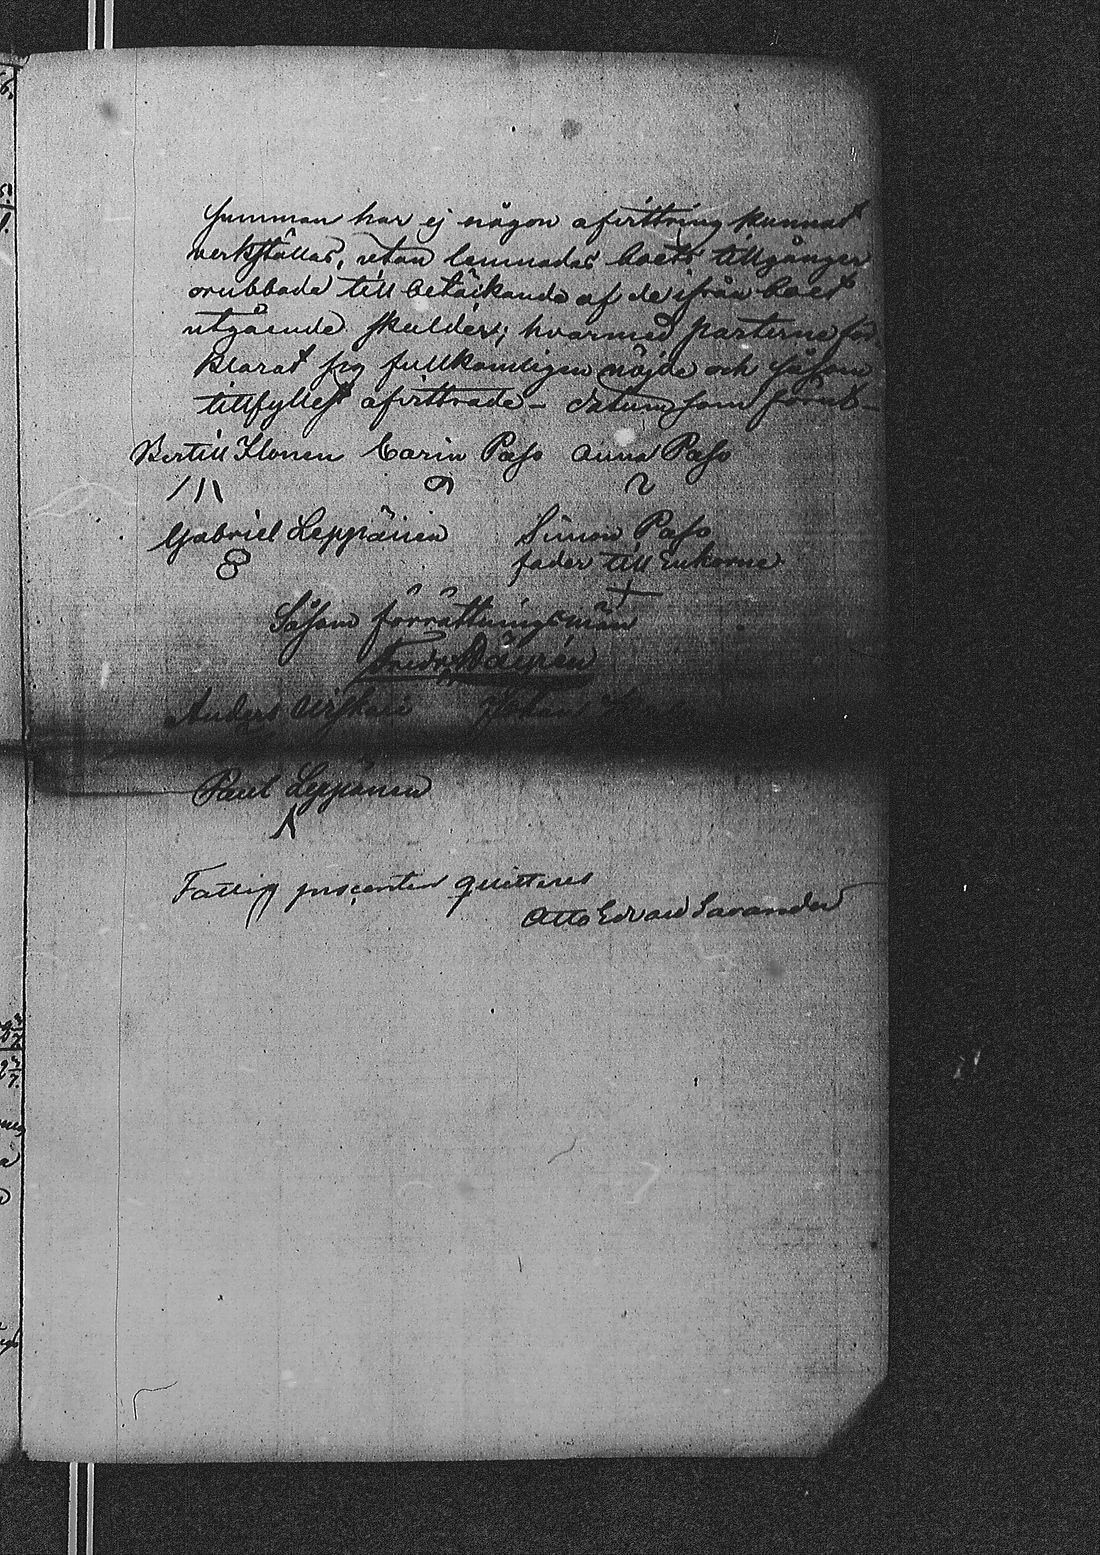 summan har ej någon afvittring kunnat
verkställas, utan lemnades boets tillgångar
orubbade till betäckande af de ifrån boet
utgående skulder; hvarmed parterne för-
klarat sig fullkomligen nöjde och såsom
tillfyllest afvittrade – datum som förut –
Bertill Ilonen Carin Paso Anna Paso
Gabriel Leppänen Simon Paso
fader till Enkorne
Såsom förrättningsmän
Fredr.
Anders Johan
Paul Leppänen
Fattig procenten quitteres
Otto Edvard Savander